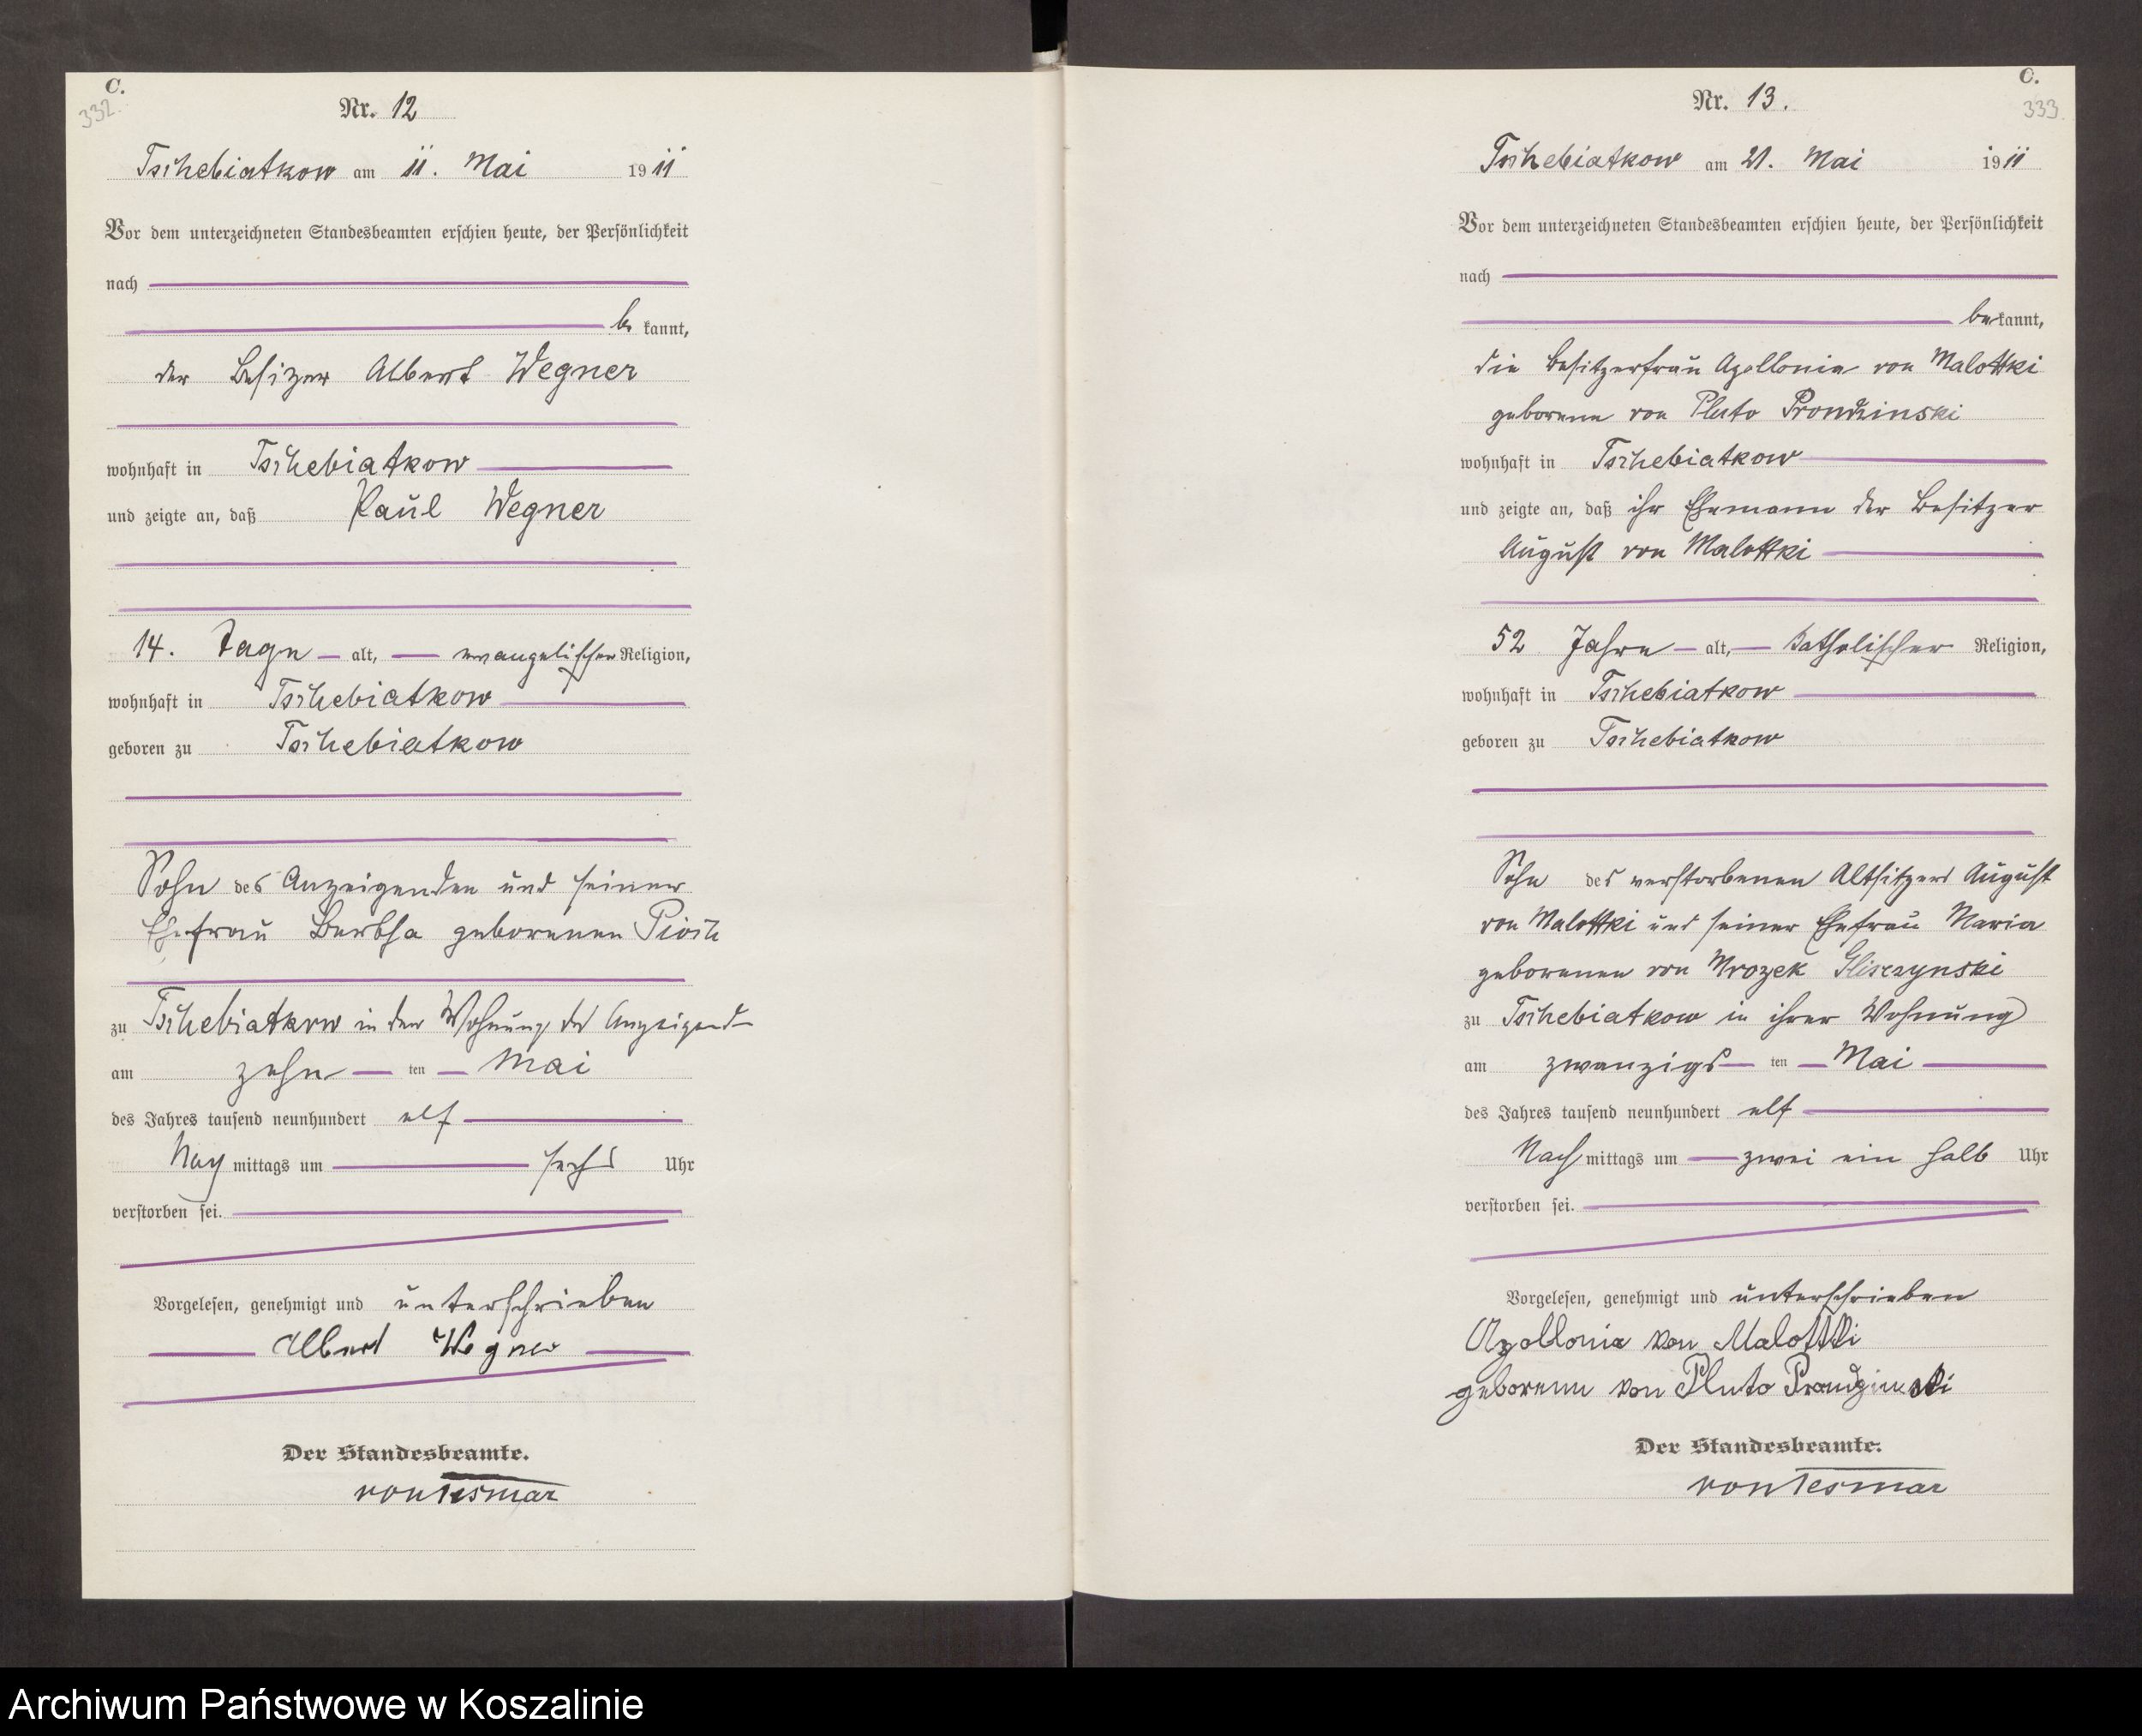 C.
332.
Nr. 12
Tschebiatkow am 11. Mai 1911
Vor dem unterzeichneten Standesbeamten erschien heute, der Persönlichkeit
nach
be kannt,
der Besitzer Albert Wegner
wohnhaft in Tschebiatkow
und zeigte an, daß Paul Wegner
14. Tage alt, evangelischer Religion,
wohnhaft in Tschebiatkow
geboren zu Tschebiatkow
Sohn des Anzeigenden und seiner
Ehefrau geborenen Piosch
zu Tschebiatkow in der Wohnung des Anzeigend
am zehn ten Mai
des Jahres tausend neunhundert elf
Nach mittags um sechs Uhr
verstorben sei.
Vorgelesen, genehmigt und unterschrieben
Albert Wegner
Der Standesbeamte.
von Tesmar
C.
333.
Nr. 13.
Tschebiatkow am 21. Mai 1911
Vor dem unterzeichneten Standesbeamten erschien heute, der Persönlichkeit
nach
be kannt,
die Besitzerfrau Apollonia von Malottki
geborene von Pluto Prondzinski
wohnhaft in Tschebiatkow
und zeigte an, daß ihr Ehemann der Besitzer
August von Malottki
52 Jahre alt, katholischer Religion,
wohnhaft in Tschebiatkow
geboren zu Tschebiatkow
Sohn des verstorbenen Altsitzers August
von Malottki und seiner Ehefrau Maria
geborenen von Mrozek Gliszynski
zu Tschebiatkow in ihrer Wohnung
am zwanzigs ten Mai
des Jahres tausend neunhundert elf
Nach mittags um zwei ein halb Uhr
verstorben sei.
Vorgelesen, genehmigt und unterschrieben
Apollonia von Malottki
geborene von Pluto Prondzinski
Der Standesbeamte.
von Tesmar
Archiwum Państwowe w Koszalinie